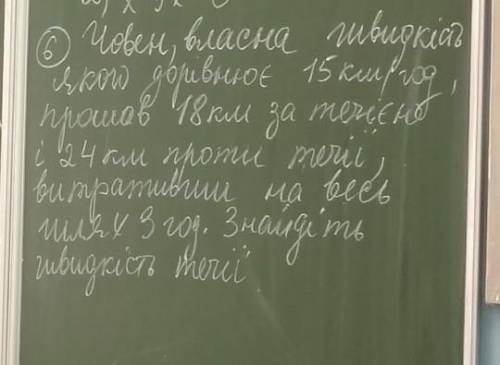 6 Човен, власна швидкість
якого дорівнює 15 км/год,
проплив 18 км за течією
і 24 км проти течії,
витративши на весь
шлях 3 год. Знайдіть
швидкість течії